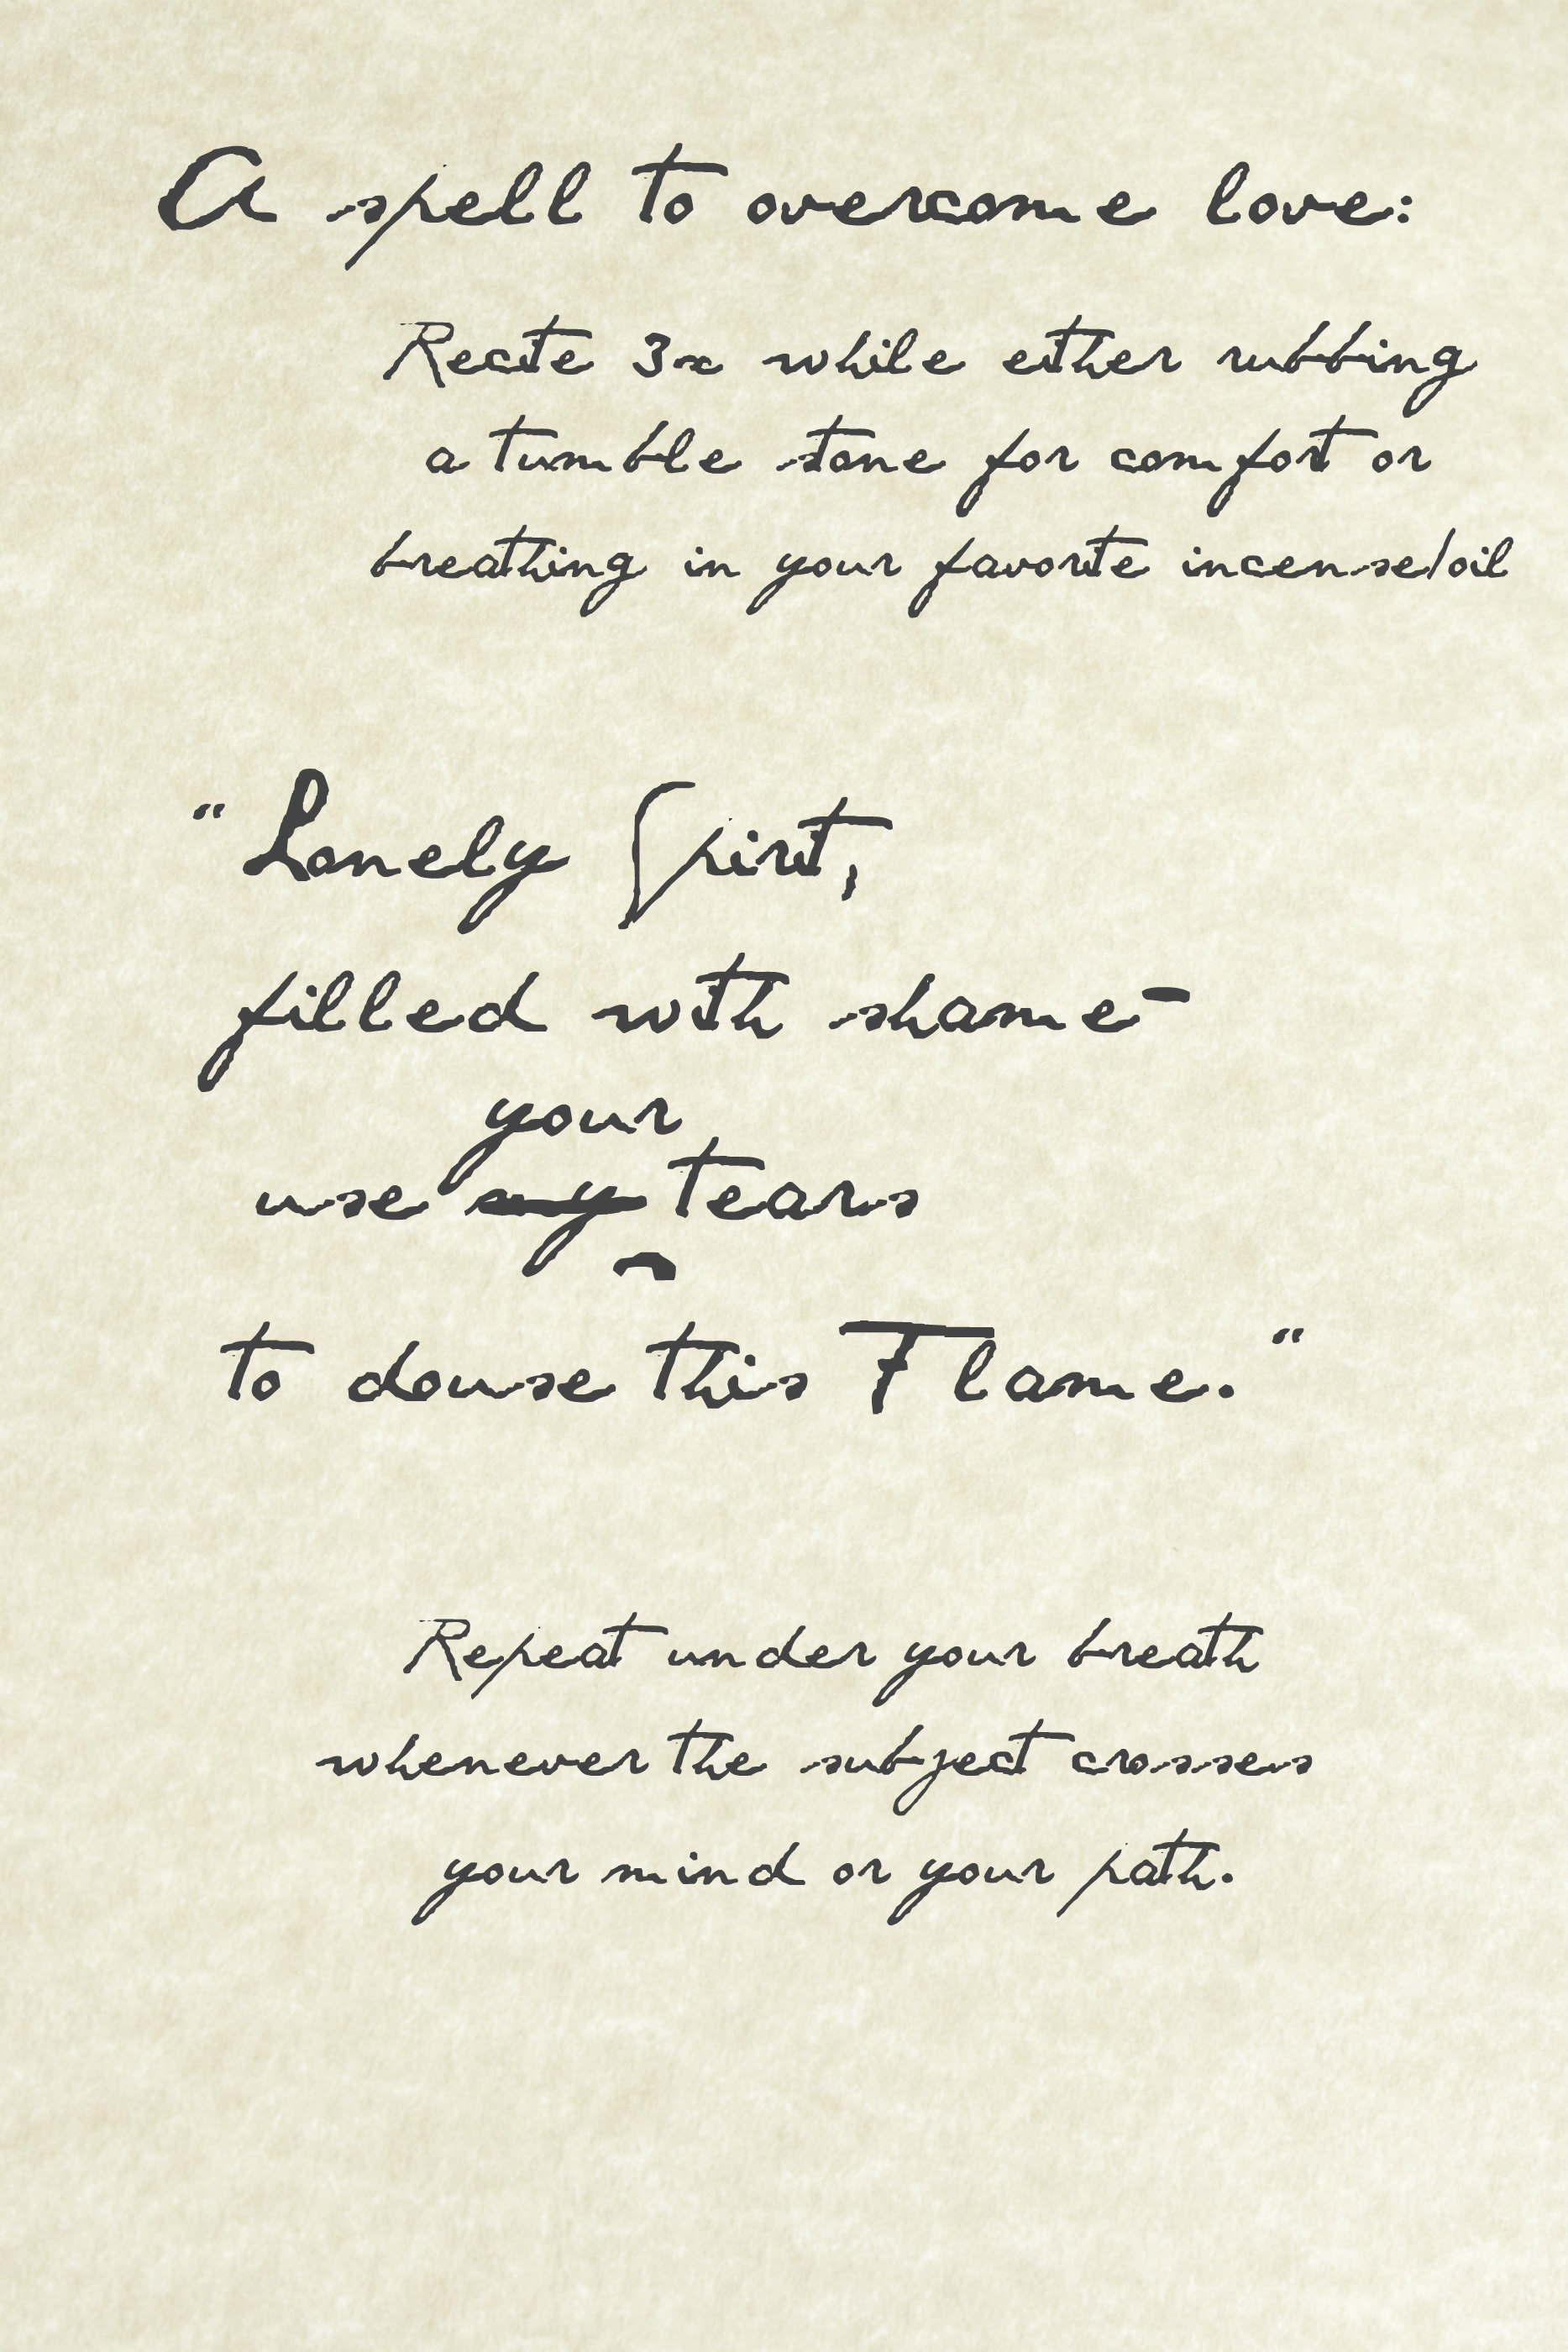 A spell to overcome love:
Recite 3x while either rubbing
a tumble stone for comfort or
breathing in your favorite incense/oil
"Lonely Spirit,
filled with shame-
your
use my tears
to douse this Flame."
Repeat under your breath
whenever the subject crosses
your mind or your path.